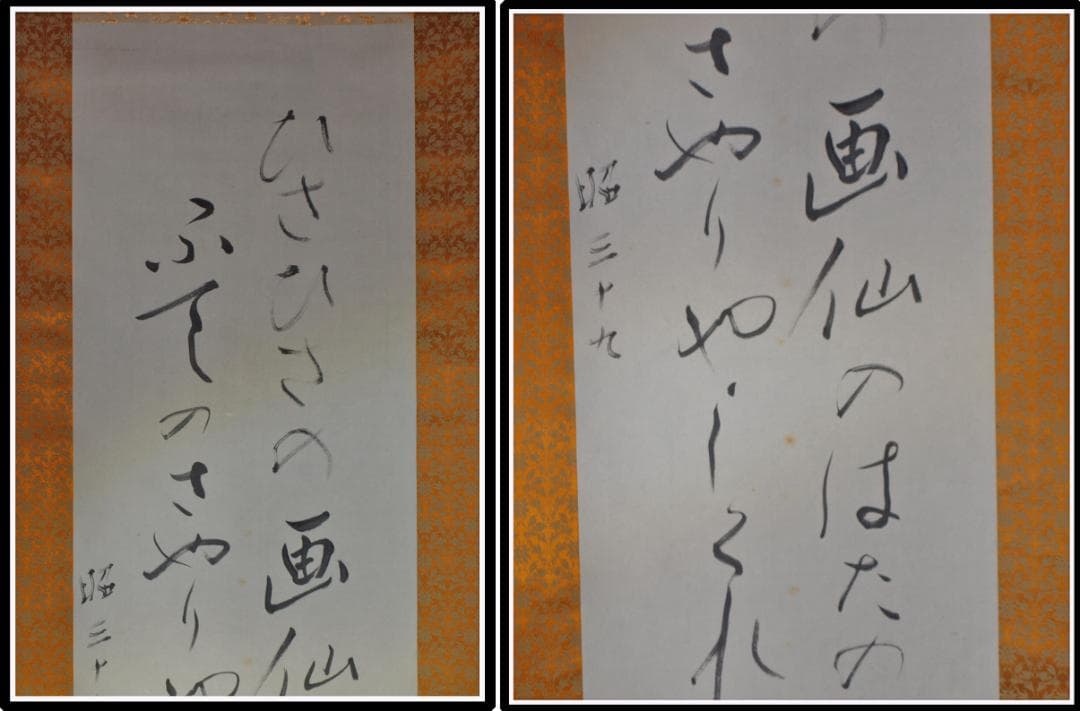 ひさひさの画仙
ふてのさやりや
昭三十
の画仙のはたの
さやりやしくれ
昭三十九